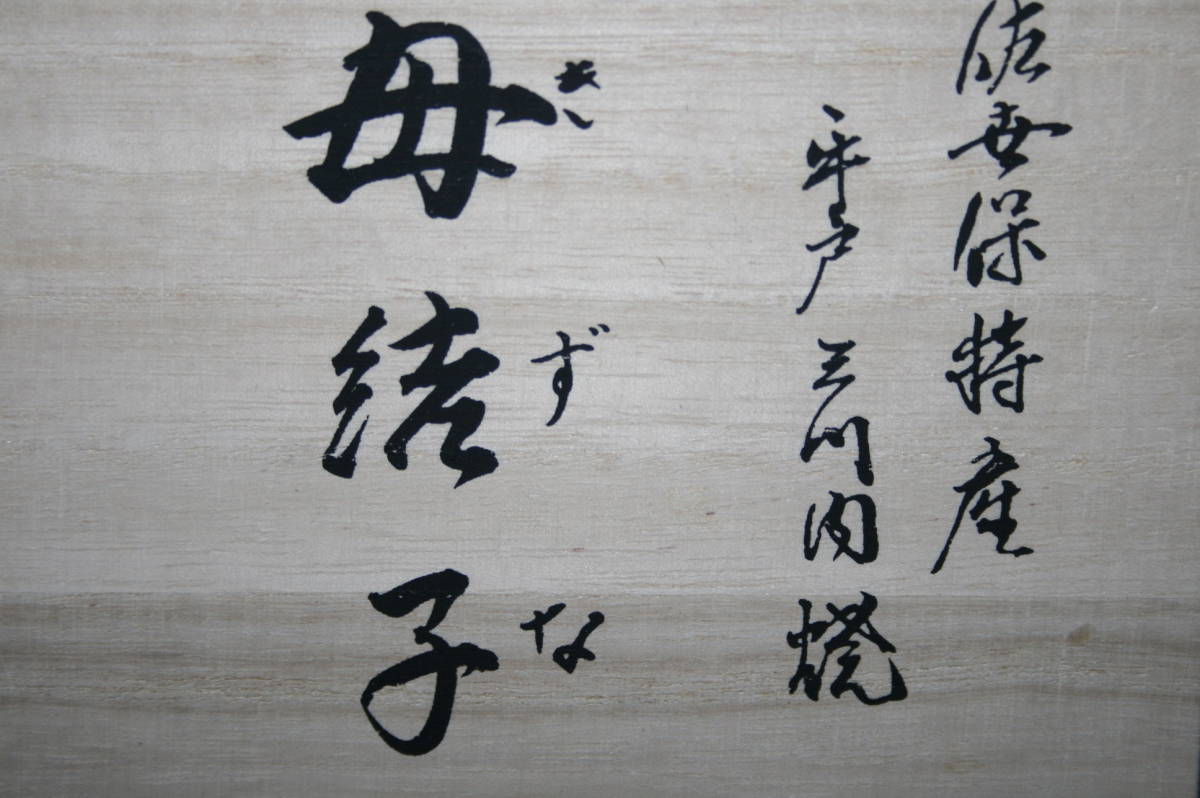 佐世保特産
平戸 三川内焼
きずな
母結子